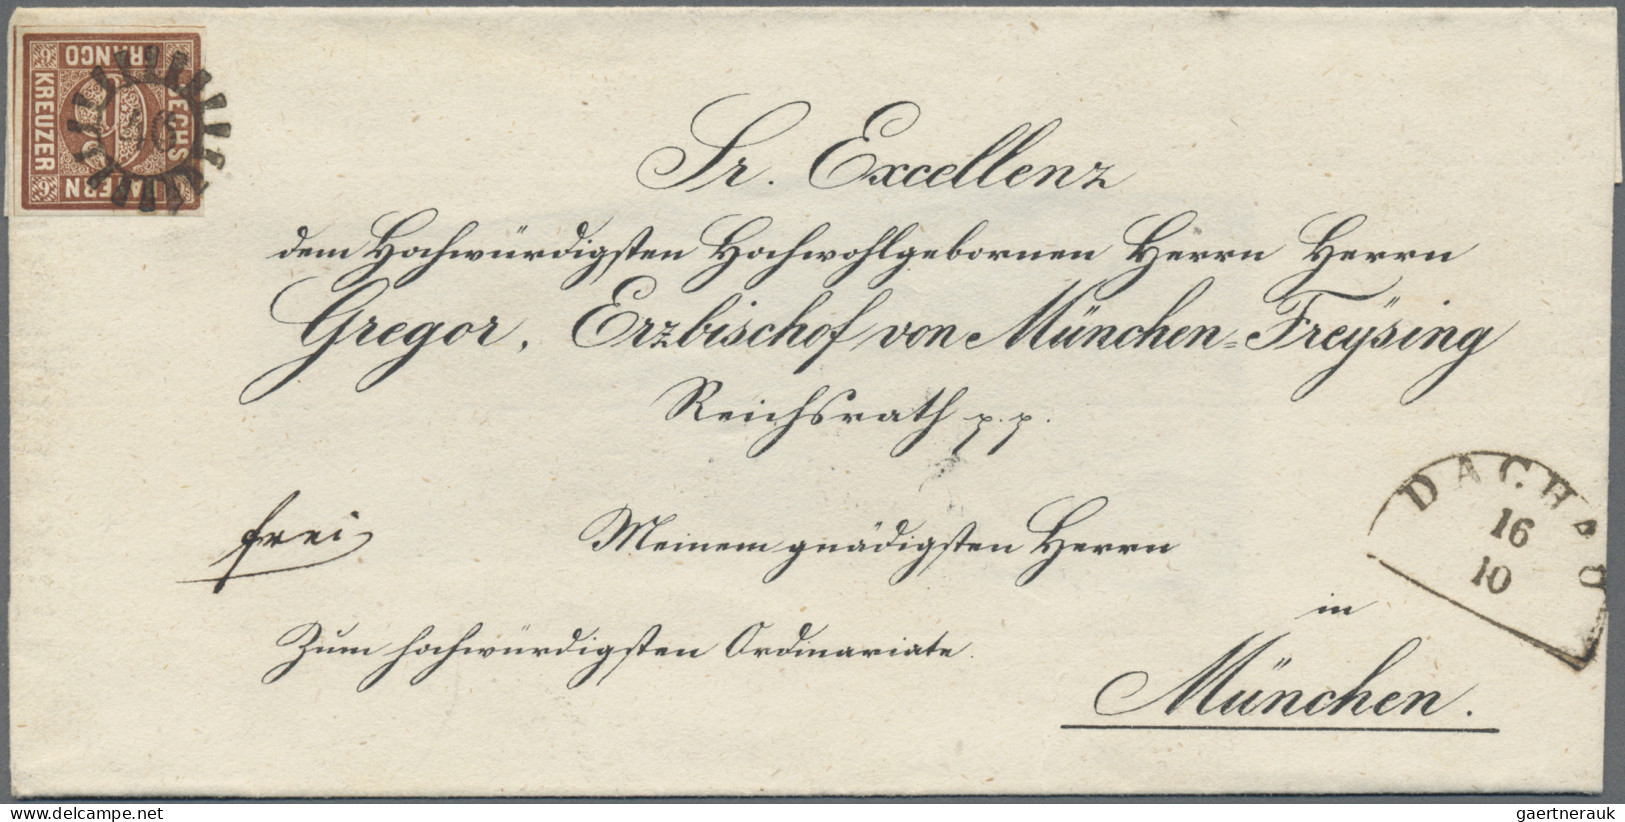 BAYERN
SECHS
FRANCO
KREUZER
6
Sr. Excellenz
dem Hochwürdigsten Hochwohlgebornen Herrn Herrn
Gregor, Erzbischof von München=Freÿsing
Reichsrath p. p.
frei
Meinem gnädigsten Herrn
Zum hochwürdigsten Ordinariate.
in
München.
DACHAU
16
10
gaertnerauk